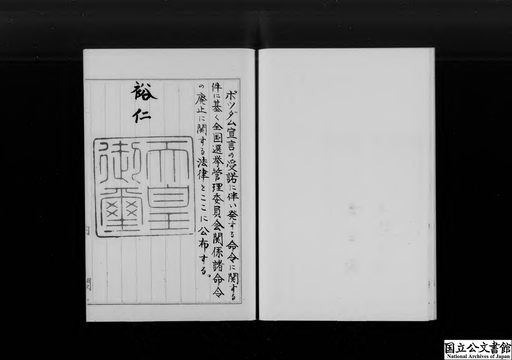 ポツダム宣言の受諾に伴い発する命令に関する
件に基く全国選挙管理委員会関係諸命令
の廃止に関する法律をここに公布する。
裕仁
天皇
御璽
国立公文書館
National Archives of Japan